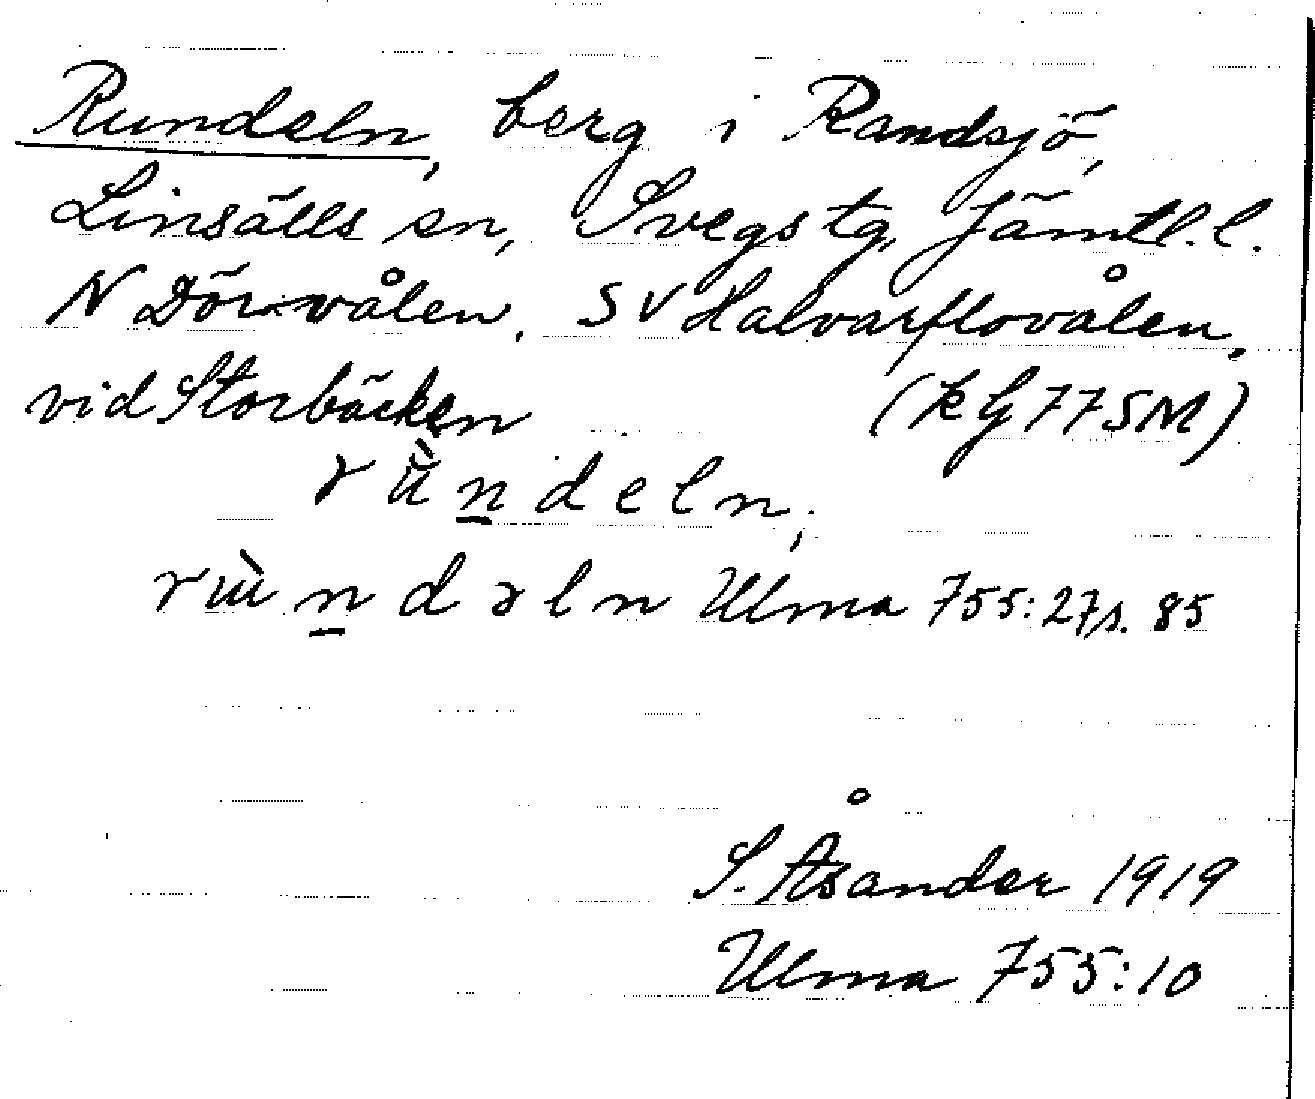 Rundeln, berg i Randsjö,
Linsälls sn, Svegs tg, Jämtl. l.
N Dörrvålen. SV Halvarflovålen,
vid Storbäcken (kG 77SM)
rùn̲deln;
rɯ̀n̲dəln Ulma 755:27 s. 85
S. Åsander 1919
Ulma 755:10